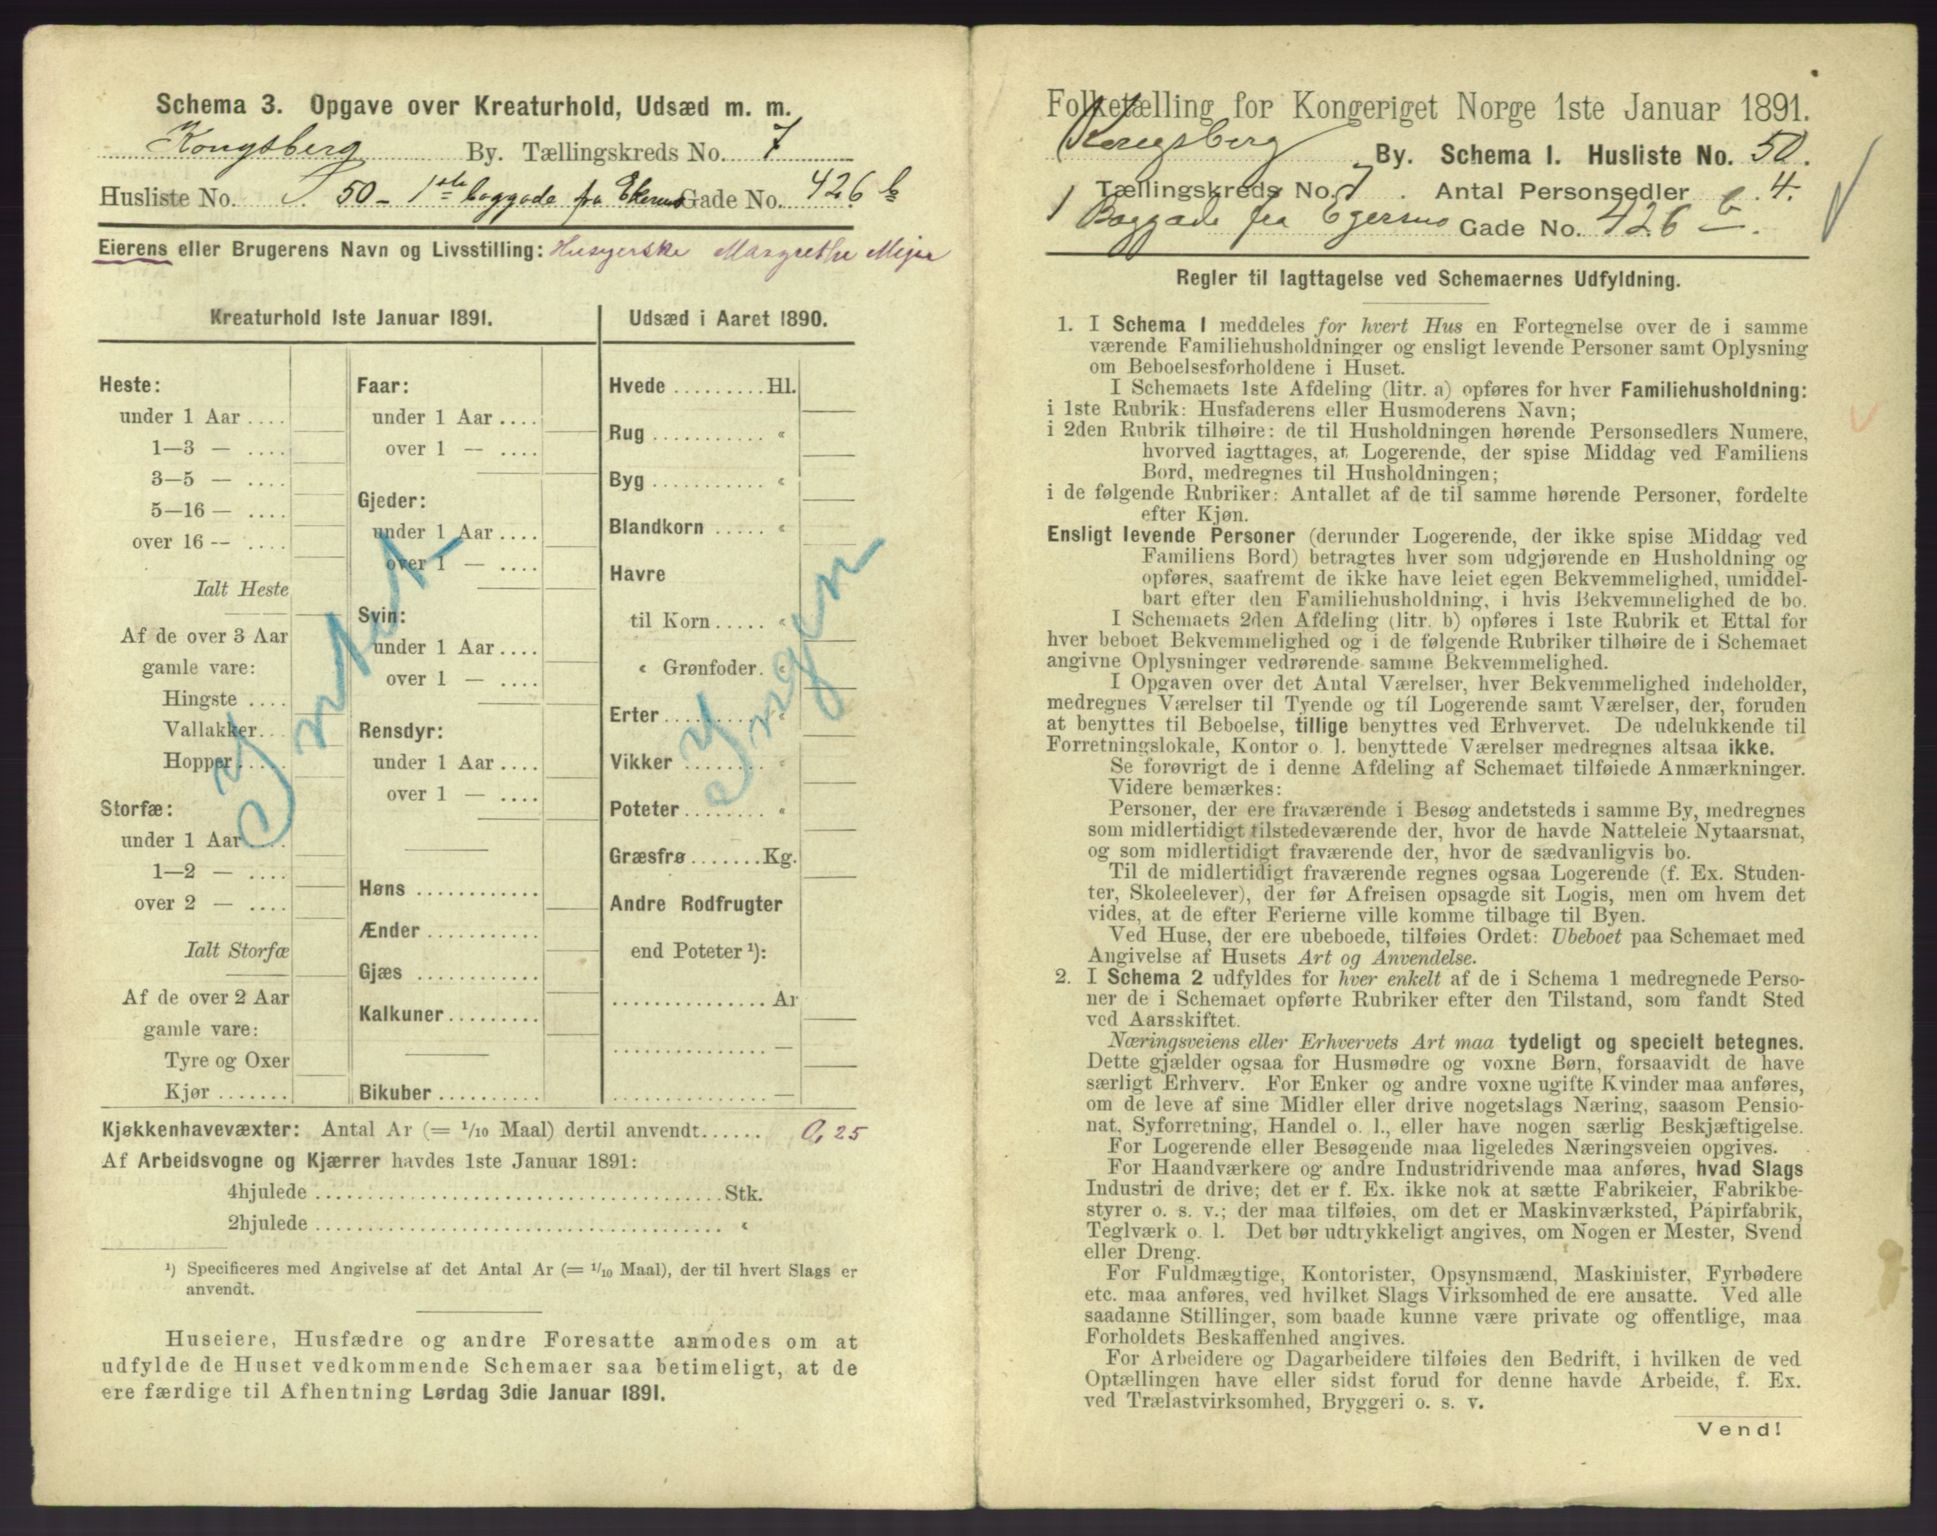 Schema 3. Opgave over Kreaturhold, Udsæd m. m.
Kongsberg By. Tællingskreds No. 7
Husliste No. 50 - 1ste baggade fra Gade No. 426 b
Eierens eller Brugerens Navn og Livsstilling: Margrethe Mejer
Kreaturhold 1ste Januar 1891.
Heste:
under 1 Aar ....
1—3 — ....
3—5 — ....
5—16 — ....
over 16 -- ....
Ialt Heste
Af de over 3 Aar
gamle vare:
Hingste ....
Vallakker..
Hopper.....
Storfæ:
under 1 Aar ....
1—2 — ....
over 2 — ....
Ialt Storfæ
Af de over 2 Aar
gamle vare:
Tyre og Oxer
Kjør .......
Faar:
under 1 Aar ....
over 1 — ....
Gjeder:
under 1 Aar ....
over 1 — ....
Svin:
under 1 Aar ....
over 1 — ....
Rensdyr:
under 1 Aar ....
over 1 — ....
Høns ............
Ænder ...........
Gjæs ............
Kalkuner.........
Bikuber ..........
Ingen
Udsæd i Aaret 1890.
Hvede .......... Hl.
Rug ........... «
Byg ........... «
Blandkorn ..... «
Havre
til Korn ..... «
« Grønfoder. «
Erter .......... «
Vikker ........ «
Poteter ........ «
Græsfrø ....... Kg.
Andre Rodfrugter
end Poteter ¹):
............... Ar
............... —
............... —
Ingen
Kjøkkenhavevæxter: Antal Ar (= 1/10 Maal) dertil anvendt...... 0,25
Af Arbeidsvogne og Kjærrer havdes 1ste Januar 1891:
4hjulede ........................................ Stk.
2hjulede ........................................ «
¹) Specificeres med Angivelse af det Antal Ar (= 1/10 Maal), der til hvert Slags er
anvendt.
Huseiere, Husfædre og andre Foresatte anmodes om at
udfylde de Huset vedkommende Schemaer saa betimeligt, at de
ere færdige til Afhentning Lørdag 3die Januar 1891.
Folketælling for Kongeriget Norge 1ste Januar 1891.
Kongsberg By. Schema I. Husliste No. 50.
Tællingskreds No. 7. Antal Personsedler 4.
1 Baggade fra Gade No. 426 b.
Regler til Iagttagelse ved Schemaernes Udfyldning.
1. I Schema I meddeles for hvert Hus en Fortegnelse over de i samme
værende Familiehusholdninger og ensligt levende Personer samt Oplysning
om Beboelsesforholdene i Huset.
I Schemaets 1ste Afdeling (litr. a) opføres for hver Familiehusholdning:
i 1ste Rubrik: Husfaderens eller Husmoderens Navn;
i 2den Rubrik tilhøire: de til Husholdningen hørende Personsedlers Numere,
hvorved iagttages, at Logerende, der spise Middag ved Familiens
Bord, medregnes til Husholdningen;
i de følgende Rubriker: Antallet af de til samme hørende Personer, fordelte
efter Kjøn.
Ensligt levende Personer (derunder Logerende, der ikke spise Middag ved
Familiens Bord) betragtes hver som udgjørende en Husholdning og
opføres, saafremt de ikke have leiet egen Bekvemmelighed, umiddel-
bart efter den Familiehusholdning, i hvis Bekvemmelighed de bo.
I Schemaets 2den Afdeling (litr. b) opføres i 1ste Rubrik et Ettal for
hver beboet Bekvemmelighed og i de følgende Rubriker tilhøire de i Schemaet
angivne Oplysninger vedrørende samme Bekvemmelighed.
I Opgaven over det Antal Værelser, hver Bekvemmelighed indeholder,
medregnes Værelser til Tyende og til Logerende samt Værelser, der, foruden
at benyttes til Beboelse, tillige benyttes ved Erhvervet. De udelukkende til
Forretningslokale, Kontor o. l. benyttede Værelser medregnes altsaa ikke.
Se forøvrigt de i denne Afdeling af Schemaet tilføiede Anmærkninger.
Videre bemærkes:
Personer, der ere fraværende i Besøg andetsteds i samme By, medregnes
som midlertidigt tilstedeværende der, hvor de havde Natteleie Nytaarsnat,
og som midlertidigt fraværende der, hvor de sædvanligvis bo.
Til de midlertidigt fraværende regnes ogsaa Logerende (f. Ex. Studen-
ter, Skoleelever), der før Afreisen opsagde sit Logis, men om hvem det
vides, at de efter Ferierne ville komme tilbage til Byen.
Ved Huse, der ere ubeboede, tilføies Ordet: Ubeboet paa Schemaet med
Angivelse af Husets Art og Anvendelse.
2. I Schema 2 udfyldes for hver enkelt af de i Schema 1 medregnede Perso-
ner de i Schemaet opførte Rubriker efter den Tilstand, som fandt Sted
ved Aarsskiftet.
Næringsveiens eller Erhvervets Art maa tydeligt og specielt betegnes.
Dette gjælder ogsaa for Husmødre og voxne Børn, forsaavidt de have
særligt Erhverv. For Enker og andre voxne ugifte Kvinder maa anføres,
om de leve af sine Midler eller drive nogetslags Næring, saasom Pensio-
nat, Syforretning, Handel o. l., eller have nogen særlig Beskjæftigelse.
For Logerende eller Besøgende maa ligeledes Næringsveien opgives.
For Haandværkere og andre Industridrivende maa anføres, hvad Slags
Industri de drive; det er f. Ex. ikke nok at sætte Fabrikeier, Fabrikbe-
styrer o. s. v.; der maa tilføies, om det er Maskinværksted, Papirfabrik,
Teglværk o. l. Det bør udtrykkeligt angives, om Nogen er Mester, Svend
eller Dreng.
For Fuldmægtige, Kontorister, Opsynsmænd, Maskinister, Fyrbødere
etc. maa anføres, ved hvilket Slags Virksomhed de ere ansatte. Ved alle
saadanne Stillinger, som baade kunne være private og offentlige, maa
Forholdets Beskaffenhed angives.
For Arbeidere og Dagarbeidere tilføies den Bedrift, i hvilken de ved
Optællingen have eller sidst forud for denne havde Arbeide, f. Ex.
ved Trælastvirksomhed, Bryggeri o. s. v.
Vend!